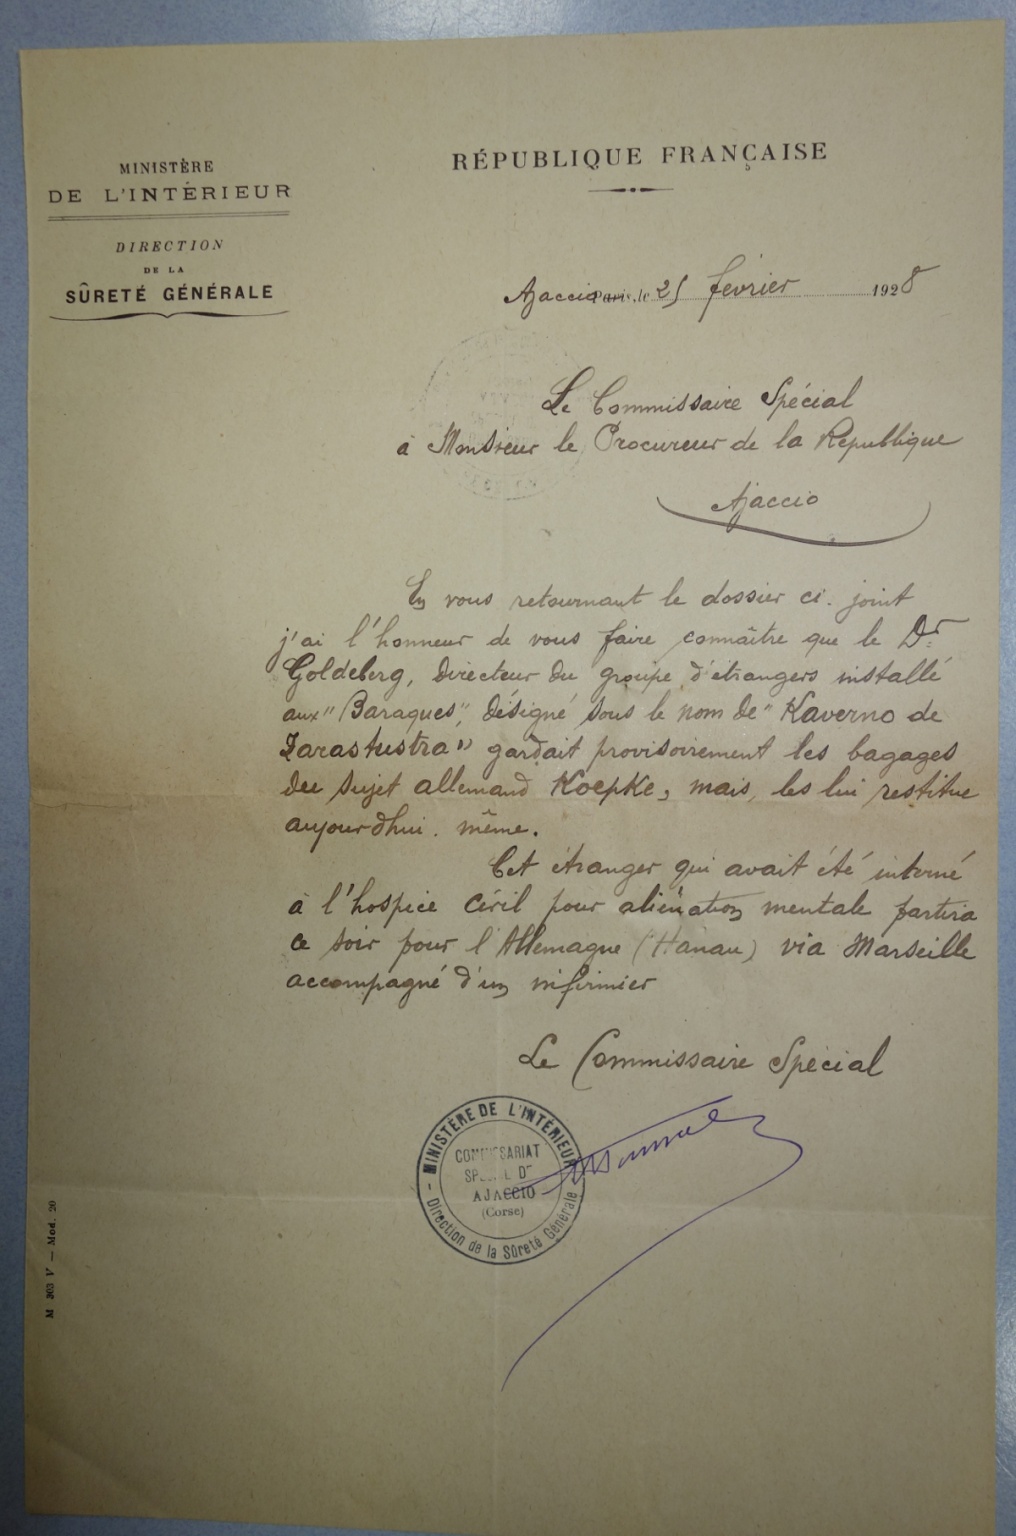 MINISTÈRE
DE L'INTÉRIEUR
DIRECTION
DE LA
SÛRETÉ GÉNÉRALE
RÉPUBLIQUE FRANÇAISE
Ajaccio Paris, le 25 février 1928
Le Commissaire Spécial
à Monsieur le Procureur de la République
Ajaccio
En vous retournant le dossier ci-joint
j'ai l'honneur de vous faire connaître que le Dr
Goldeberg, directeur du groupe d'étrangers installé
aux "Baraques", désigné sous le nom de "Kaverno de
Zarastustra" gardait provisoirement les bagages
du sujet allemand Koepke, mais, les lui restitue
aujourdhui même.
Cet étranger qui avait été interné
à l'hospice civil pour aliénation mentale partira
ce soir pour l'Allemagne (Hanau) via Marseille
accompagné d'un infirmier
Le Commissaire Spécial
MINISTÈRE DE L'INTÉRIEUR
COMMISSARIAT
SPÉCIAL DE
AJACCIO
(Corse)
Direction de la Sûreté Générale
M 303 V — Mod. 20